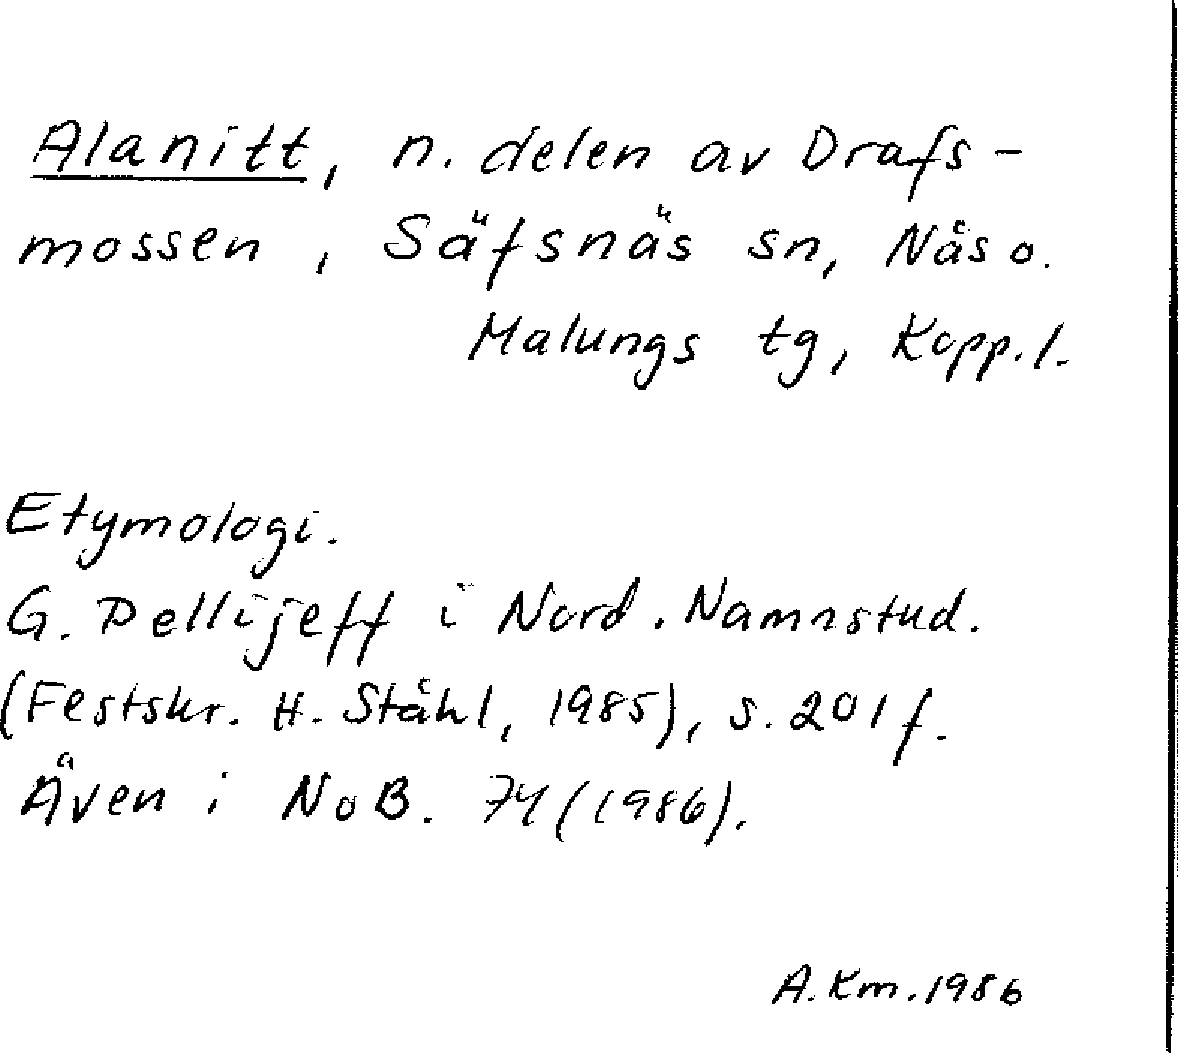 Alanitt, n. delen av Drafs-
mossen, Säfsnäs sn, Nås o.
Malungs tg, Kopp.l.
Etymologi.
G. Pellijeff i Nord. Namnstud.
(Festskr. H. Ståhl, 1985), s. 201 f.
Även i NoB. 74 (1986).
A.Km.1986